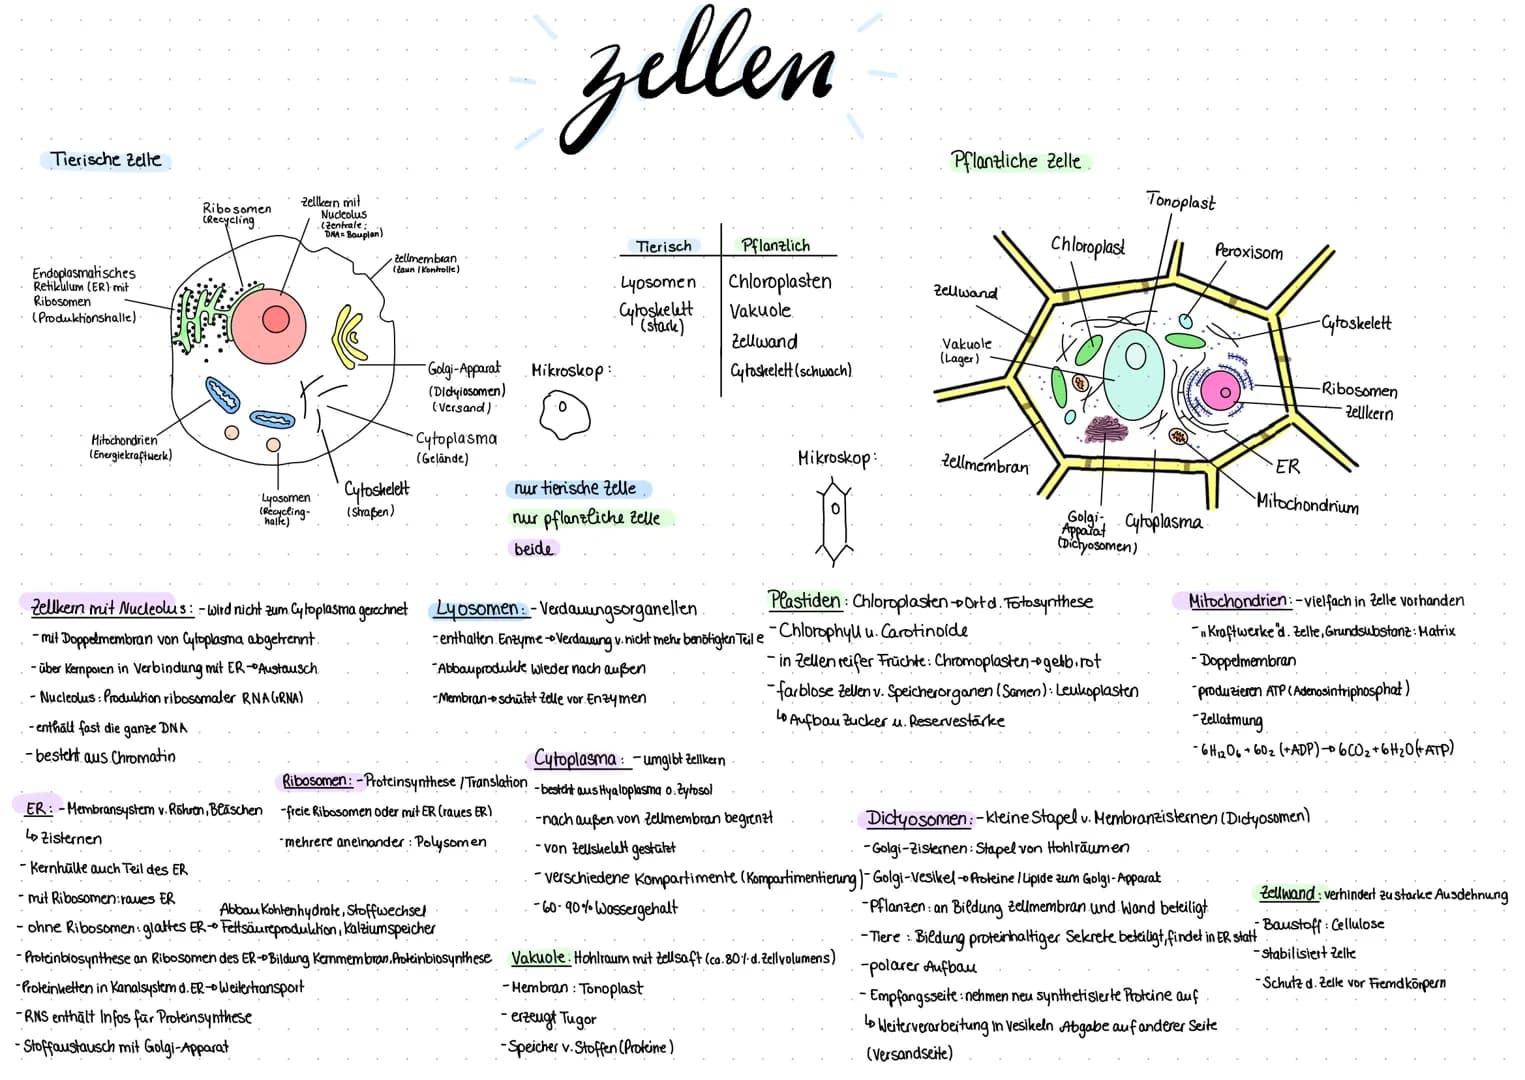 zellen
Tierische Zelle
Pflanzliche Zelle
Ribosomen
(Recycling
Zellkern mit
Nucleolus
(Zentrale;
DNA = Bauplan)
Zellmembran
(Zaun / Kontrolle)
Endoplasmatisches
Retikulum (ER) mit
Ribosomen
(Produktionshalle)
Golgi-Apparat
(Dictyiosomen)
(Versand)
Mitochondrien
(Energiekraftwerk)
Cytoplasma
(Gelände)
Lyosomen
(Recycling-
halle)
Cytoskelett
(Straßen)
Tierisch
Pflanzlich
Lyosomen
Chloroplasten
Cytoskelett
(stark)
Vakuole
Zellwand
Cytoskelett (schwach)
Mikroskop:
Mikroskop:
nur tierische Zelle
nur pflanzliche Zelle
beide
Tonoplast
Chloroplast
Peroxisom
Zellwand
Cytoskelett
Vakuole
(Lager)
Ribosomen
Zellkern
Zellmembran
ER
Mitochondrium
Golgi-
Apparat
(Dictyosomen)
Cytoplasma
Zellkern mit Nucleolus: - wird nicht zum Cytoplasma gerechnet
- mit Doppelmembran von Cytoplasma abgetrennt
- über Kernporen in Verbindung mit ER → Austausch
- Nucleolus: Produktion ribosomaler RNA (rRNA)
- enthält fast die ganze DNA
- besteht aus Chromatin
Lyosomen: - Verdauungsorganellen
- enthalten Enzyme → Verdauung v. nicht mehr benötigten Teile
- Abbauprodukte wieder nach außen
- Membran → schützt Zelle vor Enzymen
Plastiden: Chloroplasten → Ort d. Fotosynthese
- Chlorophyll u. Carotinoide
- in Zellen reifer Früchte: Chromoplasten → gelb, rot
- farblose Zellen v. Speicherorganen (Samen): Leukoplasten
↳ Aufbau Zucker u. Reservestärke
Mitochondrien: - vielfach in Zelle vorhanden
- „Kraftwerke" d. Zelle, Grundsubstanz: Matrix
- Doppelmembran
- produzieren ATP (Adenosintriphosphat)
- Zellatmung
- 6H₁₂O₆ + 6O₂ (+ADP) → 6CO₂ + 6H₂O (+ATP)
ER: - Membransystem v. Röhren, Bläschen
↳ Zisternen
- Kernhülle auch Teil des ER
- mit Ribosomen: raues ER
Abbau Kohlenhydrate, Stoffwechsel
- ohne Ribosomen: glattes ER → Fettsäureproduktion, Kalziumspeicher
- Proteinbiosynthese an Ribosomen des ER → Bildung Kernmembran, Proteinbiosynthese
- Proteinketten in Kanalsystem d. ER → Weitertransport
- RNS enthält Infos für Proteinsynthese
- Stoffaustausch mit Golgi-Apparat
Ribosomen: - Proteinsynthese / Translation
- freie Ribosomen oder mit ER (raues ER)
- mehrere aneinander: Polysomen
Cytoplasma: - umgibt Zellkern
- besteht aus Hyaloplasma o. Zytosol
- nach außen von Zellmembran begrenzt
- von Zellskelett gestützt
- verschiedene Kompartimente (Kompartimentierung)
- 60-90% Wassergehalt
Vakuole: Hohlraum mit Zellsaft (ca. 80% d. Zellvolumens)
- Membran: Tonoplast
- erzeugt Tugor
- Speicher v. Stoffen (Proteine)
Dictyosomen: - kleine Stapel v. Membranzisternen (Dictyosomen)
- Golgi-Zisternen: Stapel von Hohlräumen
- Golgi-Vesikel → Proteine / Lipide zum Golgi-Apparat
- Pflanzen: an Bildung Zellmembran und Wand beteiligt
- Tiere: Bildung proteinhaltiger Sekrete beteiligt, findet in ER statt
- polarer Aufbau
- Empfangsseite: nehmen neu synthetisierte Proteine auf
↳ Weiterverarbeitung in Vesikeln Abgabe auf anderer Seite
(Versandseite)
Zellwand: verhindert zu starke Ausdehnung
- Baustoff: Cellulose
- stabilisiert Zelle
- Schutz d. Zelle vor Fremdkörpern